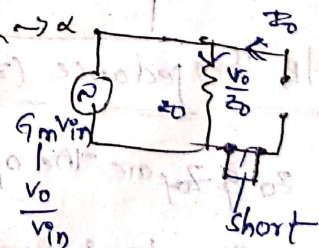 → ∞
Z₀
V₀
Z₀
Z₀
GmVin
V₀
Vin
short